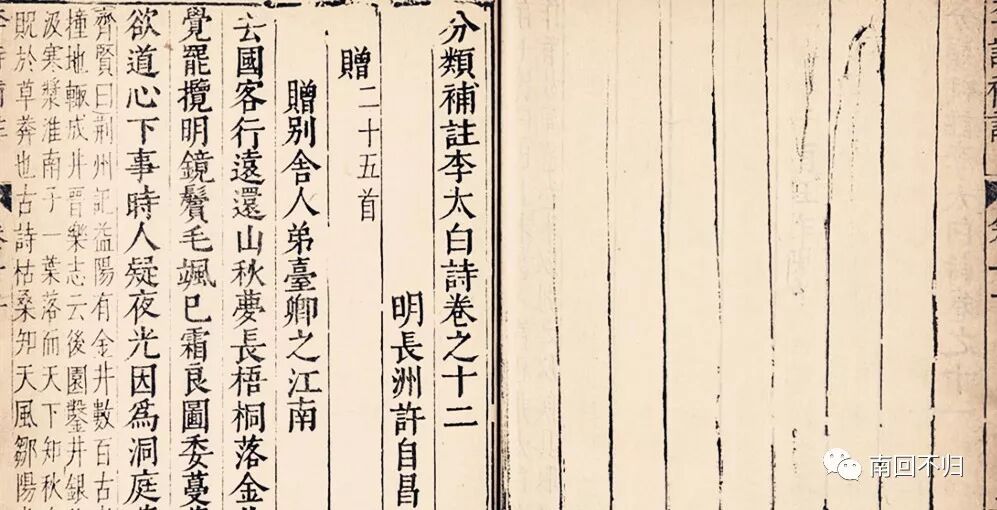 分類補註李太白詩卷之十二
明長洲許自昌
贈二十五首
贈別舍人弟臺卿之江南
去國客行遠還山秋夢長梧桐落金
覺罷攬明鏡鬢毛颯已霜良圖委蔓
欲道心下事時人疑夜光因爲洞庭
齊賢曰荆州記益陽有金井數百古
撞地輙成井晉樂志云後園鑿井銀
汲寒漿淮南子一葉落而天下知秋
貺於草莽也古詩枯桑知天風鄒陽
南回不归